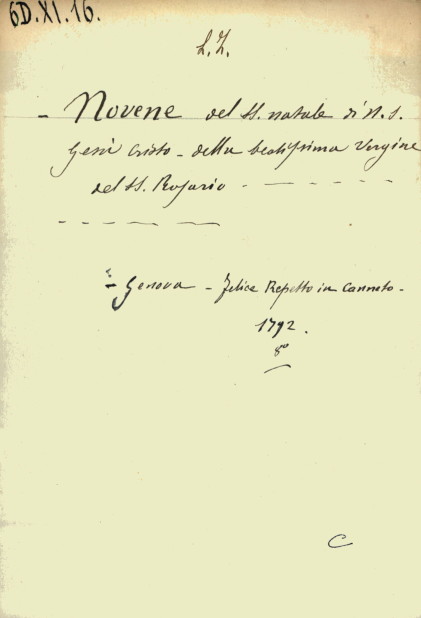 6D.XI.16.
L.Z.
- Novene del SS. natale di N.S.
Gesù Cristo - della beatissima Vergine
del SS. Rosario - - - - - -
- - - - -
- Genova - Felice Repetto in Canneto -
1792.
8º
C